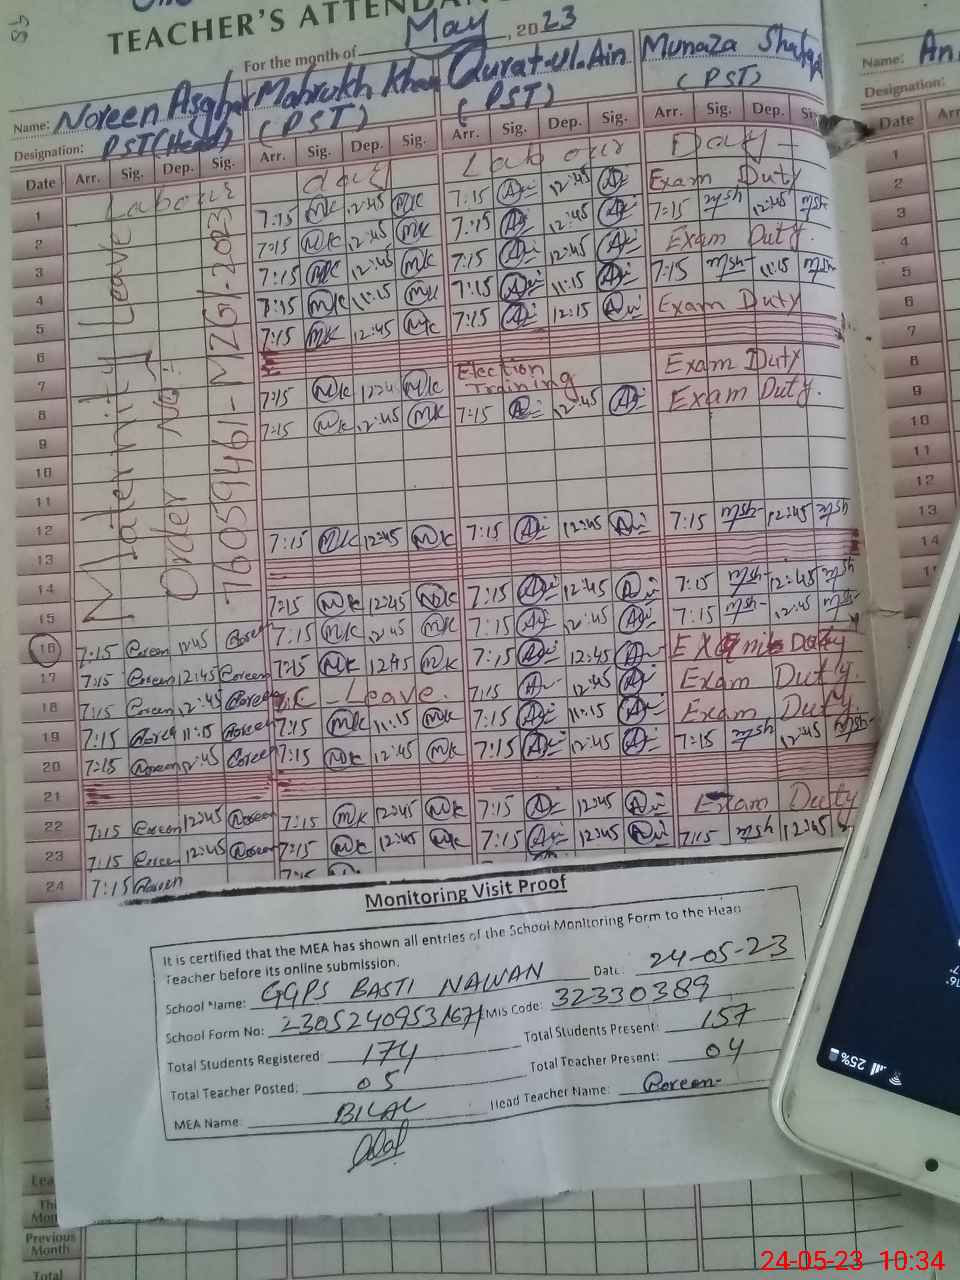 TEACHER'S ATTENDAN
For the month of May, 2023
Name: Noreen Asghar Mahrukh Khan Qurat-ul-Ain Munaza Shafqa
Designation: PST (Head) (PST) (PST) (PST)
Name: An
Designation:
Date Arr. Sig. Dep. Sig. Arr. Sig. Dep. Sig. Arr. Sig. Dep. Sig. Arr. Sig. Dep. Si
Date Arr
Labour day Labour Day
Maternity Leave
Order No:
1 7:15 MK 12:45 MK 7:15 12:45 Exam Duty
2 7:15 MK 12:45 MK 7:15 12:45 7:15 msh 12:45 msh
3 7:15 MK 12:45 MK 7:15 12:45 Exam Duty.
4 7:15 MK 11:15 MK 7:15 11:15 7:15 msh 11:15 msh
5 7:15 MK 12:45 MK 7:15 12:15 Exam Duty
6
7 7:15 MK 1224 MK Election Training Exam Duty
8 7:15 MK 12:45 MK 7:15 12:45 Exam Duty.
9
10
11
12 7:15 MK 12:45 MK 7:15 12:45 7:15 msh 12:45 msh
13
14 7:15 MK 12:45 MK 7:15 12:45 7:15 msh 12:45 msh
15 7:15 MK 12:45 MK 7:15 12:45 7:15 msh 12:45 msh
16 7:15 Noreen 12:45 Noreen 7:15 MK 12:45 MK 7:15 12:45 Exam Duty
17 7:15 Noreen 12:45 Noreen Leave. 7:15 12:45 Exam Duty.
18 7:15 Noreen 12:45 Noreen 7:15 MK 11:15 MK 7:15 11:15 Exam Duty.
19 7:15 Noreen 11:15 Noreen 7:15 MK 12:45 MK 7:15 12:45 7:15 msh 12:45 msh
20 7:15 Noreen 12:45 Noreen
21
22 7:15 Noreen 12:45 Noreen 7:15 MK 12:45 MK 7:15 12:45 Exam Duty
23 7:15 Noreen 12:45 Noreen 7:15 MK 12:45 MK 7:15 12:45 7:15 msh 12:45
24 7:15 Noreen
Monitoring Visit Proof
It is certified that the MEA has shown all entries of the School Monitoring Form to the Head
Teacher before its online submission.
Date: 24-05-23
School Name: GGPS BASTI NAWAN
School Form No: MIS Code: 32330389
Total Students Registered: 174 Total Students Present: 157
Total Teacher Posted: 05 Total Teacher Present: 04
MEA Name: BILAL Head Teacher Name: Noreen
Lea
Thi
Mon
Previous
Month
Total
25%
24-05-23 10:34